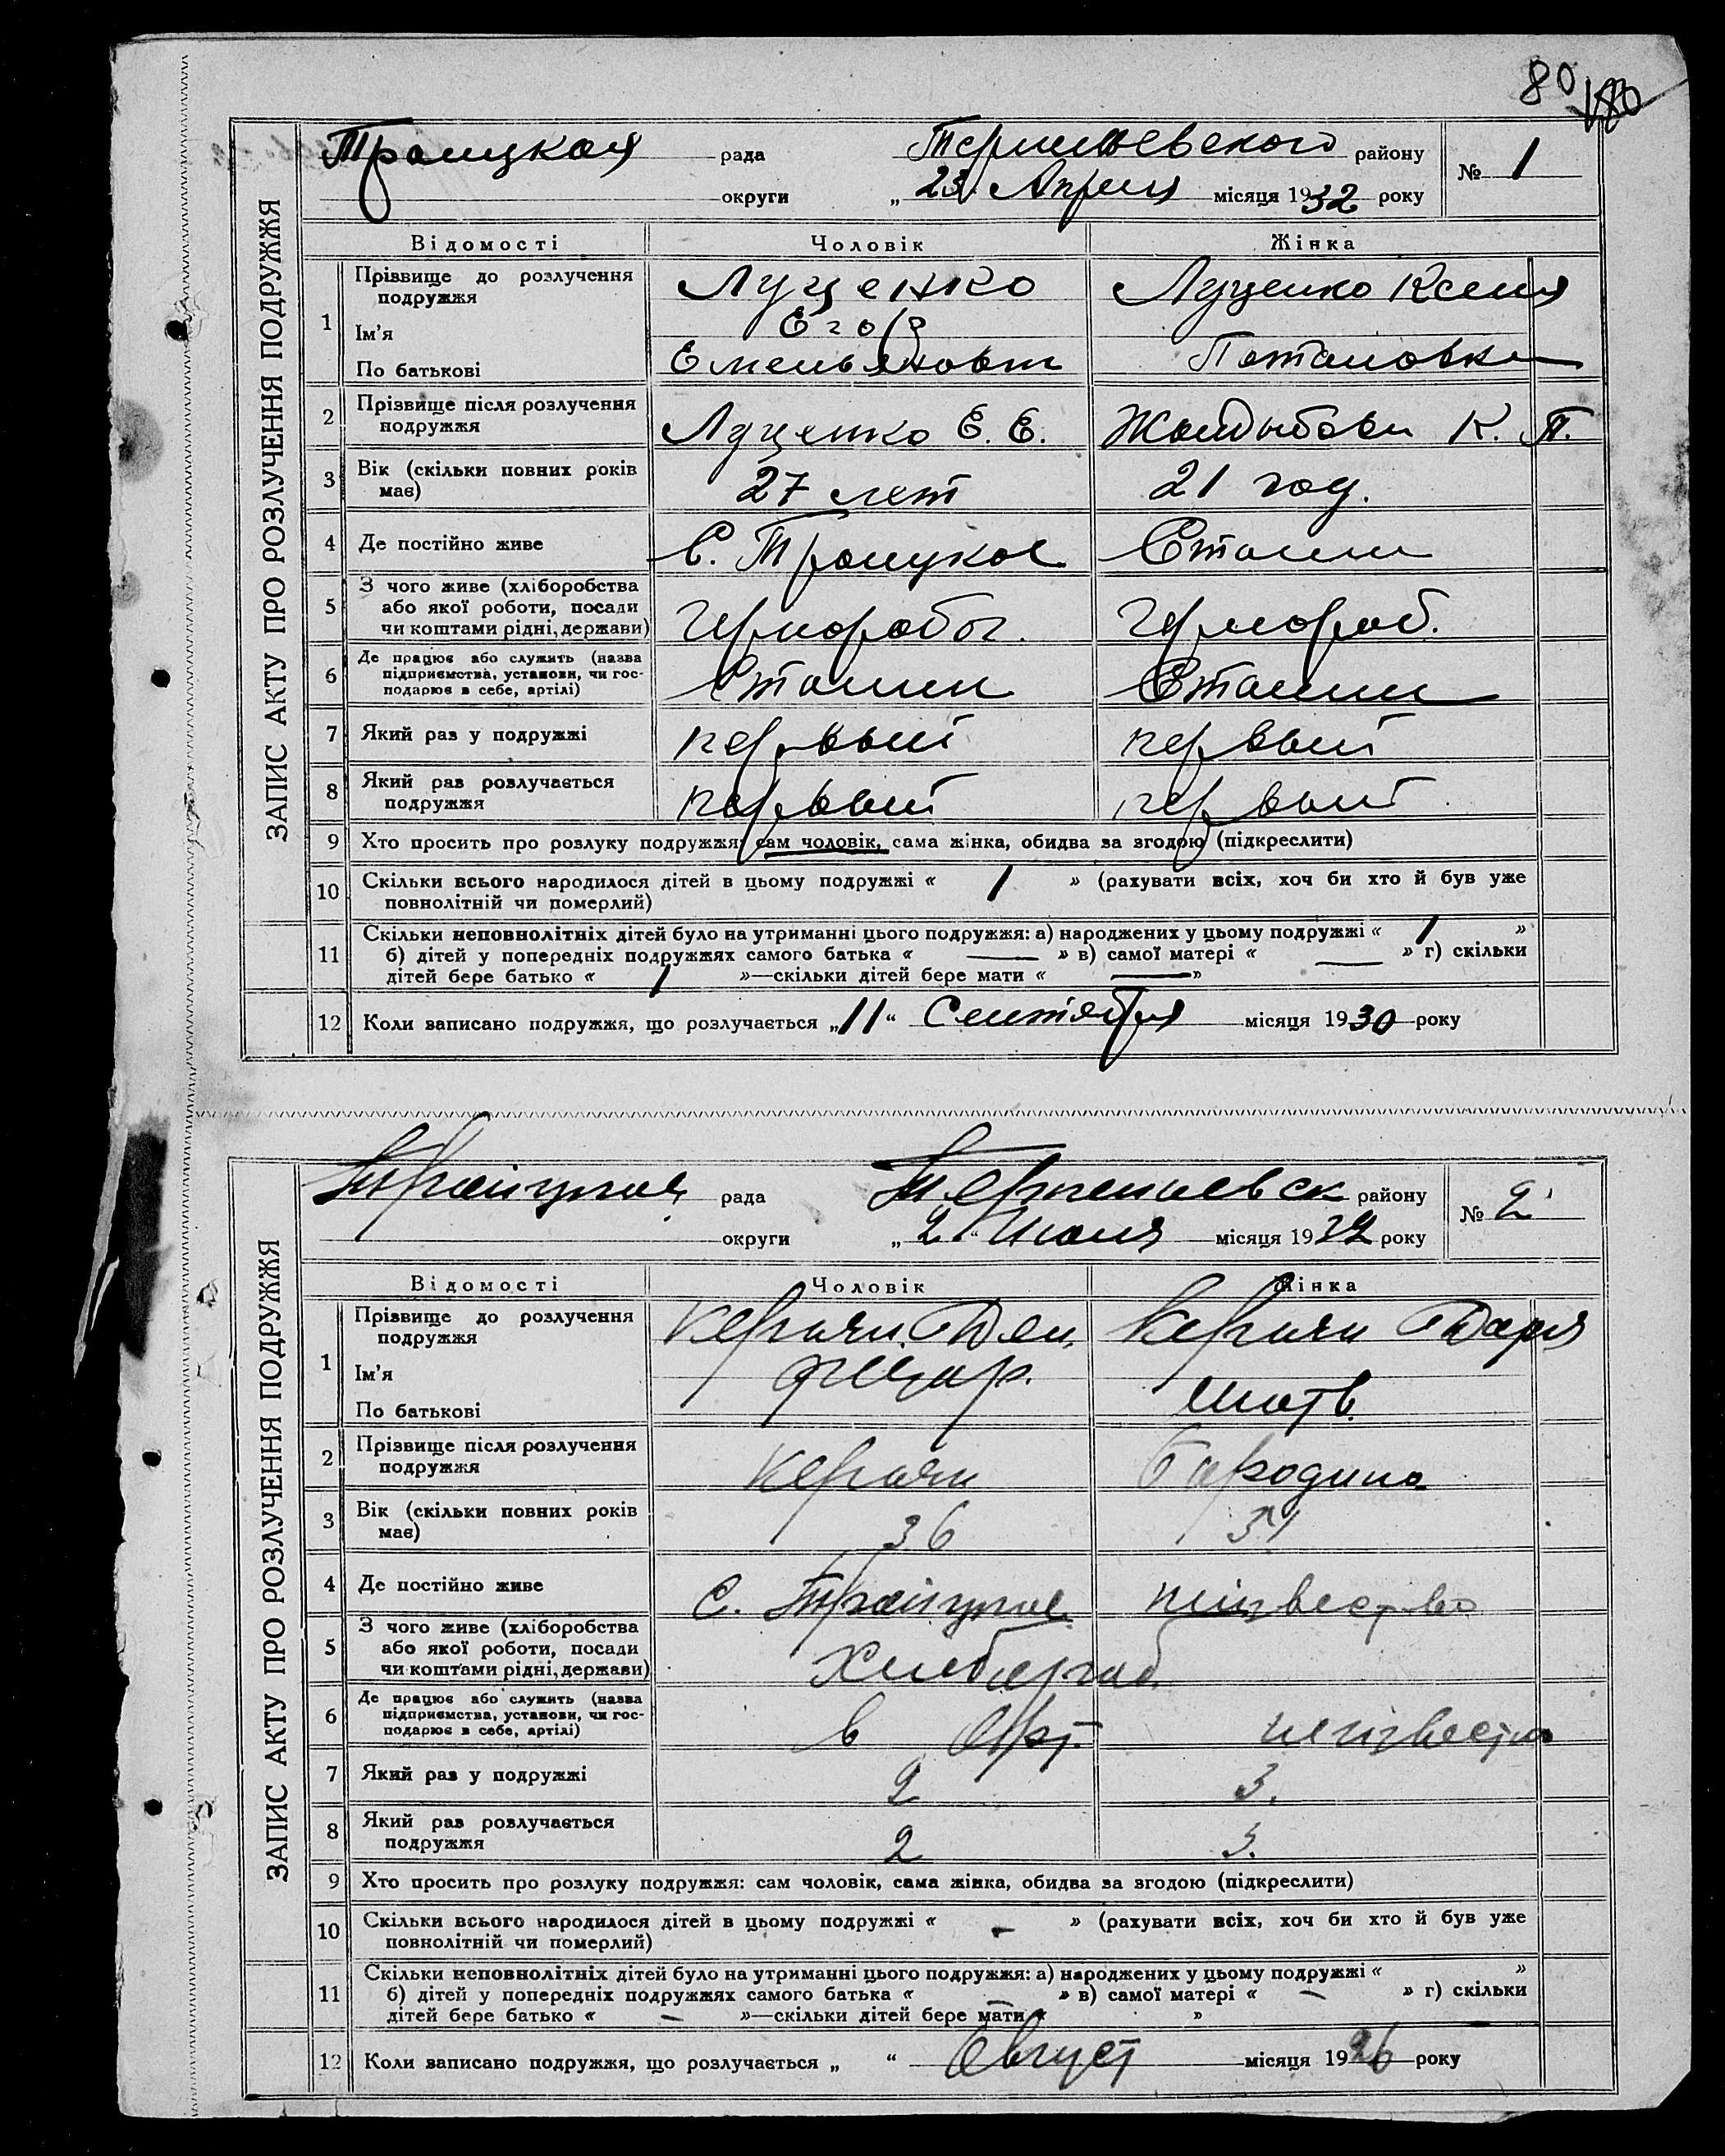 80
180
ЗАПИС АКТУ ПРО РОЗЛУЧЕННЯ ПОДРУЖЖЯ
Троицкая рада района
округи „ 23 Апреля місяця 1932 року
№ 1
Відомості Чоловік Жінка
1 Прізвище до розлучення подружжя Луценко Луценко Ксения
Ім'я Егор
По батькові Емельянович Потаповна
2 Прізвище після розлучення подружжя Луценко Е. Е. К. П.
3 Вік (скільки повних років має) 27 лет 21 год.
4 Де постійно живе С. Троицкое
5 З чого живе (хліборобства
або якої роботи, посади
чи коштами рідні, держави) Чернорабоч. Чернораб.
6 Де працює або служить (назва
підприємства, установи, чи гос-
подарює в себе, артілі)
7 Який раз у подружжі первый первый
8 Який раз розлучається подружжя первый первый
9 Хто просить про розлуку подружжя: сам чоловік, сама жінка, обидва за згодою (підкреслити)
10 Скільки всього народилося дітей в цьому подружжі « 1 » (рахувати всіх, хоч би хто й був уже
повнолітній чи померлий)
11 Скільки неповнолітніх дітей було на утриманні цього подружжя: а) народжених у цьому подружжі « 1 »
б) дітей у попередніх подружжях самого батька « — » в) самої матері « — » г) скільки
дітей бере батько « 1 »—скільки дітей бере мати « — »
12 Коли записано подружжя, що розлучається „ 11 “ Сентября місяця 1930 року
ЗАПИС АКТУ ПРО РОЗЛУЧЕННЯ ПОДРУЖЖЯ
рада району
округи „ 2 “ Июля місяця 1932 року
№ 2
Відомості Чоловік Жінка
1 Прізвище до розлучення
подружжя Даря
Ім'я
По батькові Матв.
2 Прізвище після розлучення
подружжя Бародина
3 Вік (скільки повних років
має) 36 31
4 Де постійно живе С. неизвестно
5 З чого живе (хліборобства
або якої роботи, посади
чи коштами рідні, держави)
6 Де працює або служить (назва
підприємства, установи, чи гос-
подарює в себе, артілі) в неизвестно
7 Який раз у подружжі 2 3.
8 Який раз розлучається
подружжя 2 3.
9 Хто просить про розлуку подружжя: сам чоловік, сама жінка, обидва за згодою (підкреслити)
10 Скільки всього народилося дітей в цьому подружжі « - » (рахувати всіх, хоч би хто й був уже
повнолітній чи померлий)
11 Скільки неповнолітніх дітей було на утриманні цього подружжя: а) народжених у цьому подружжі « »
б) дітей у попередніх подружжях самого батька « - » в) самої матері « - » г) скільки
дітей бере батько « - »—скільки дітей бере мати « »
12 Коли записано подружжя, що розлучається „ “ Август місяця 1926 року